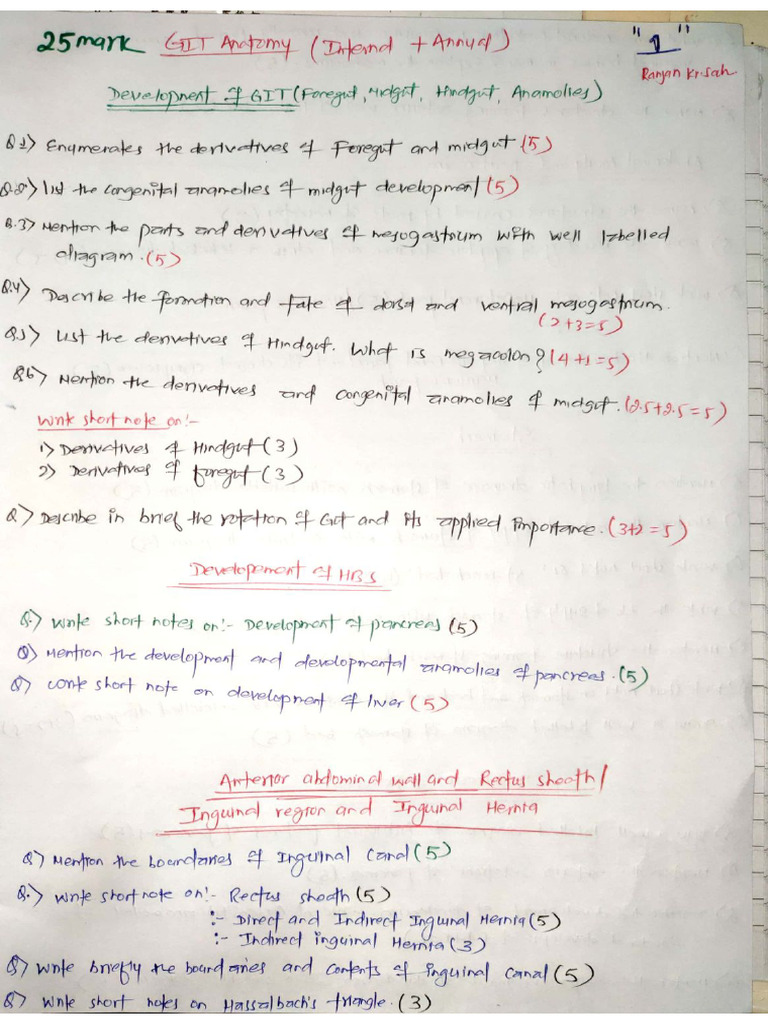 25 mark GIT Anatomy (Internal + Annual) "1"
Ranjan Kr. Sah
Development of GIT (Foregut, Midgut, Hindgut, Anamolies)
Q1) Enumerates the derivatives of Foregut and midgut (5)
Q.2) List the congenital anamolies of midgut development (5)
Q.3) Mention the parts and derivatives of mesogastrium with well labelled
diagram. (5)
Q.4) Describe the formation and fate of dorsal and ventral mesogastrium.
(2+3=5)
Q5) List the derivatives of Hindgut. What is megacolon? (4+1=5)
Q6) Mention the derivatives and congenital anamolies of midgut. (2.5+2.5=5)
Write short note on:-
1) Derivatives of Hindgut (3)
2) Derivatives of foregut (3)
Q) Describe in brief the rotation of Gut and its applied importance. (3+2=5)
Developement of HBS
Q.) Write short notes on:- Development of pancreas (5)
Q) Mention the development and developmental anamolies of pancreas. (5)
Q) Write short note on development of liver (5)
Anterior abdominal wall and Rectus sheath/
Inguinal region and Inguinal Hernia
Q) Mention the boundaries of Inguinal Canal (5)
Q.) Write short note on:- Rectus sheath (5)
:- Direct and Indirect Inguinal Hernia (5)
:- Indirect inguinal Hernia (3)
Q) Write briefly the boundaries and contents of inguinal canal (5)
Q) Write short notes on Hassalbach's triangle. (3)